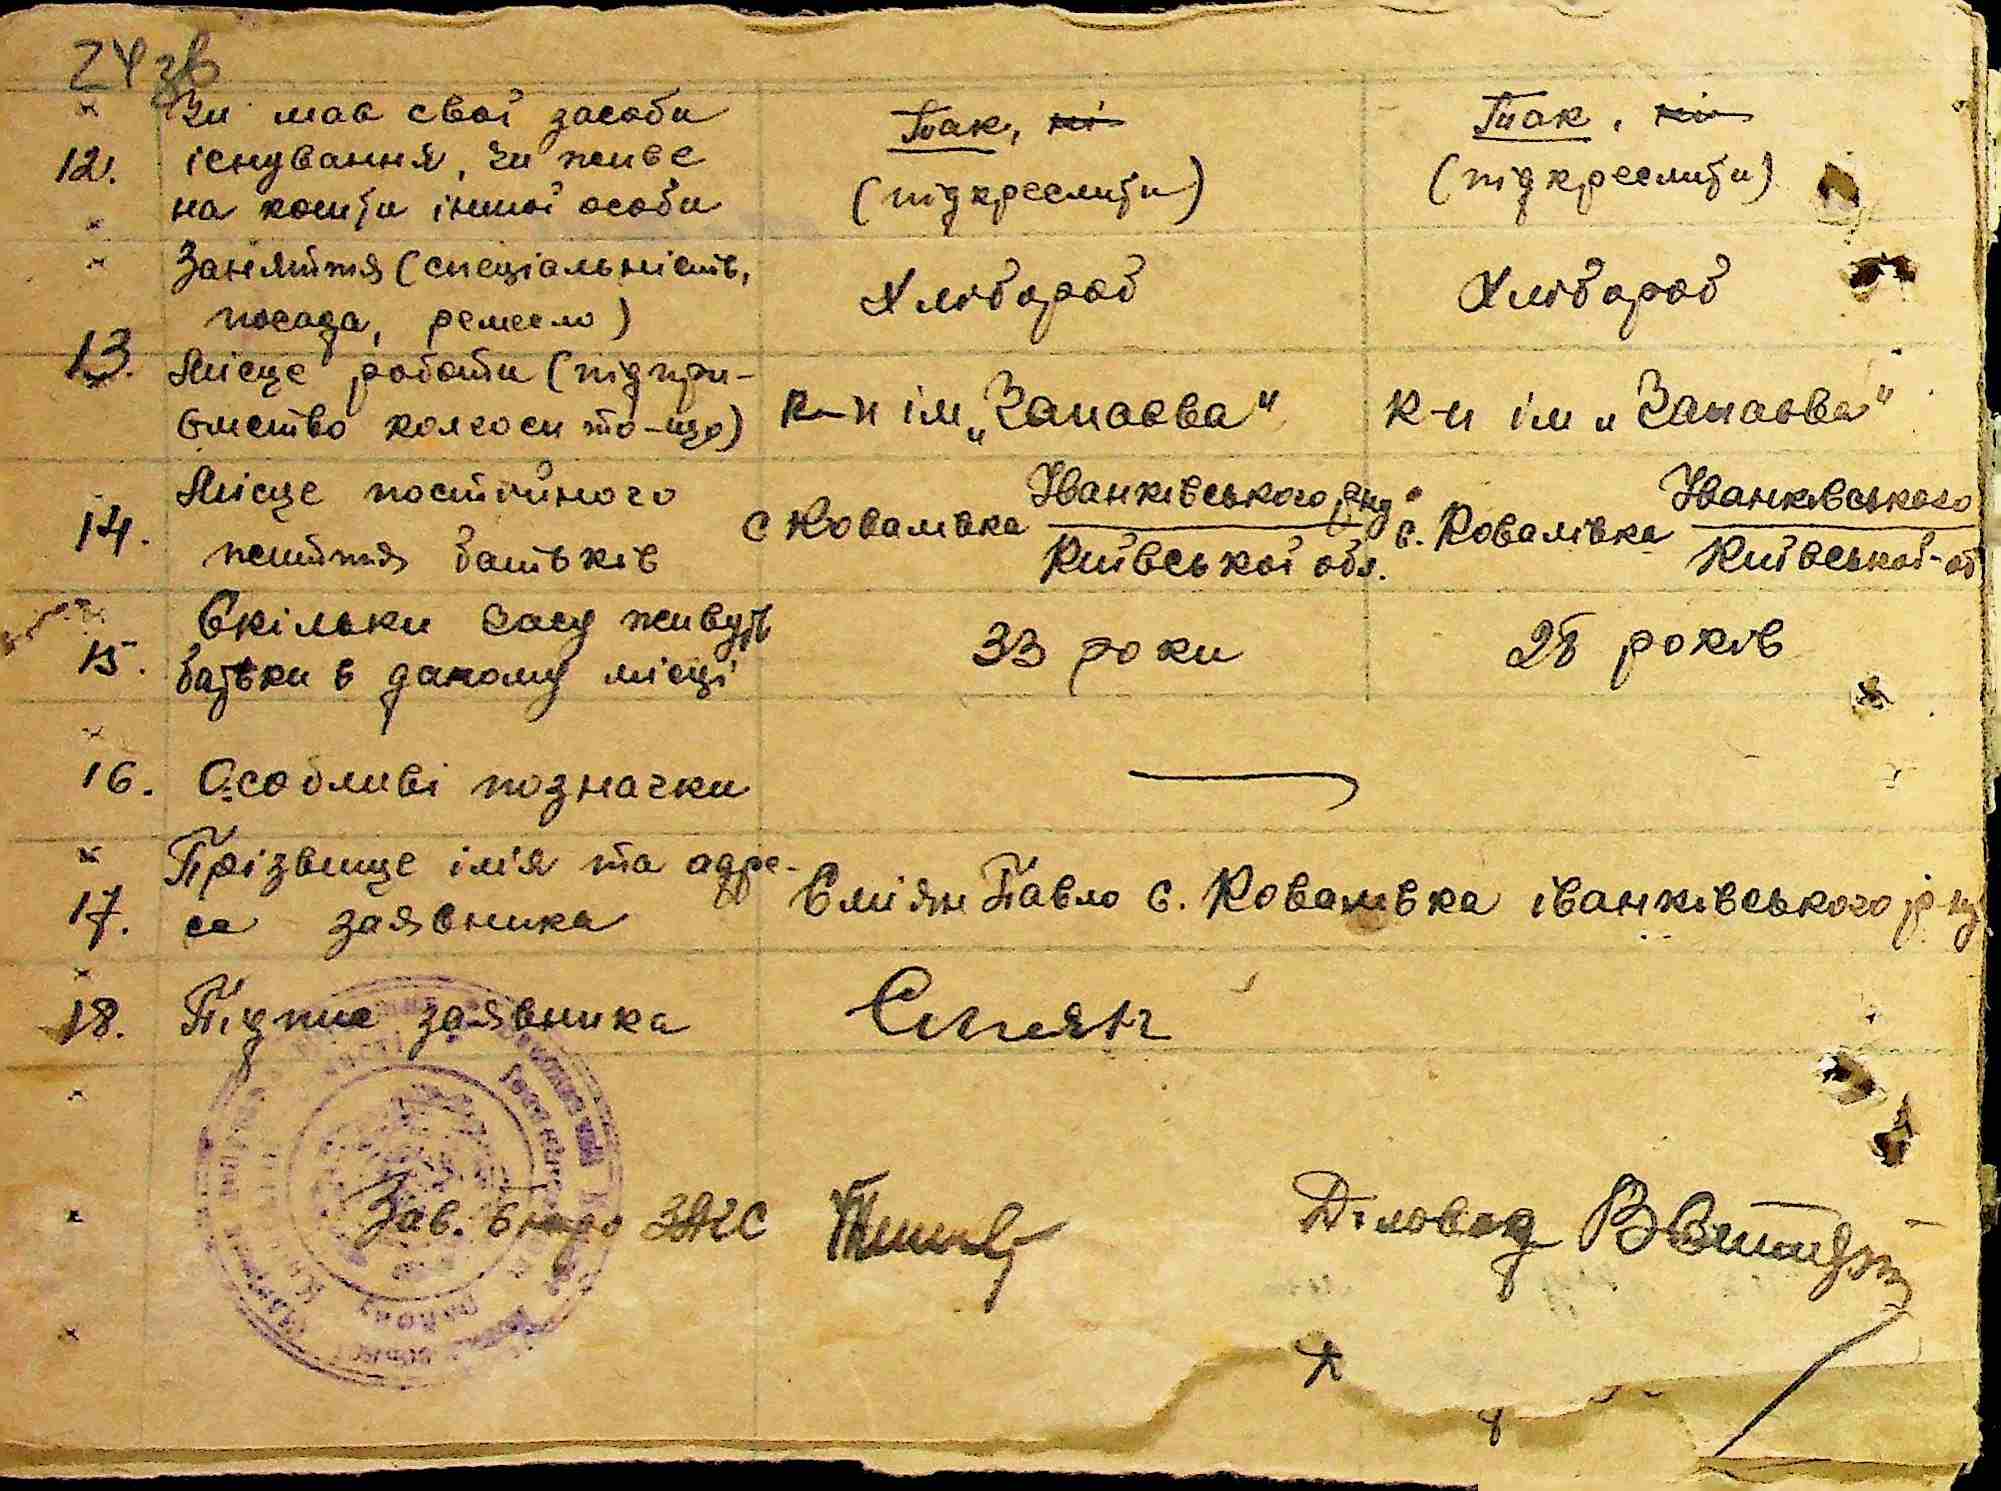 24 зв
Чи має свої засоби
12. існування, чи живе
на кошти іншої особи
Так, ні
(підкреслити)
Так, ні
(підкреслити)
Заняття (спеціальність,
посада, ремесло)
Хлібороб
Хлібороб
13.
Місце роботи (підпри-
ємство колгосп то-що)
к-п ім „Чапаєва“
к-п ім „Чапаєва“
14. Місце постійного
життя батьків
с Ковалівка Іванківського р-ну
Київської обл.
с. Ковалівка Іванківського
Київської-об
15. Скільки часу живуть
батьки в даному місці
33 роки
28 років
16. Особливі позначки
17. Прізвище ім'я та адре-
са заявника
Єміян Павло с. Ковалівка іванківського р-ну
18. Підпис заявника
Єміян
Зав. Бюро ЗАГС
Діловод